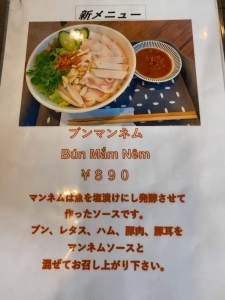 新メニュー
ブンマンネム
Bún Mắm Nêm
￥８９０
マンネムは魚を塩漬けにし発酵させて
作ったソースです。
ブン、レタス、ハム、豚肉、豚耳を
マンネムソースと
混ぜてお召し上がり下さい。